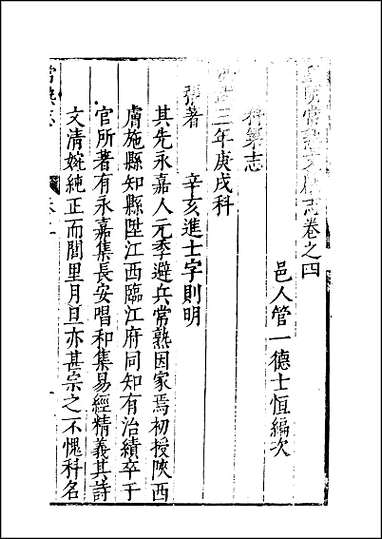 皇明常熟文獻志卷之四
邑人管一德士恒編次
科第志
洪武三年庚戌科
張著　辛亥進士字則明
其先永嘉人元季避兵常熟因家焉初授陝西
膚施縣知縣陞江西臨江府同知有治績卒于
官所著有永嘉集長安唱和集易經精義其詩
文清婉純正而閭里月旦亦甚宗之不愧科名